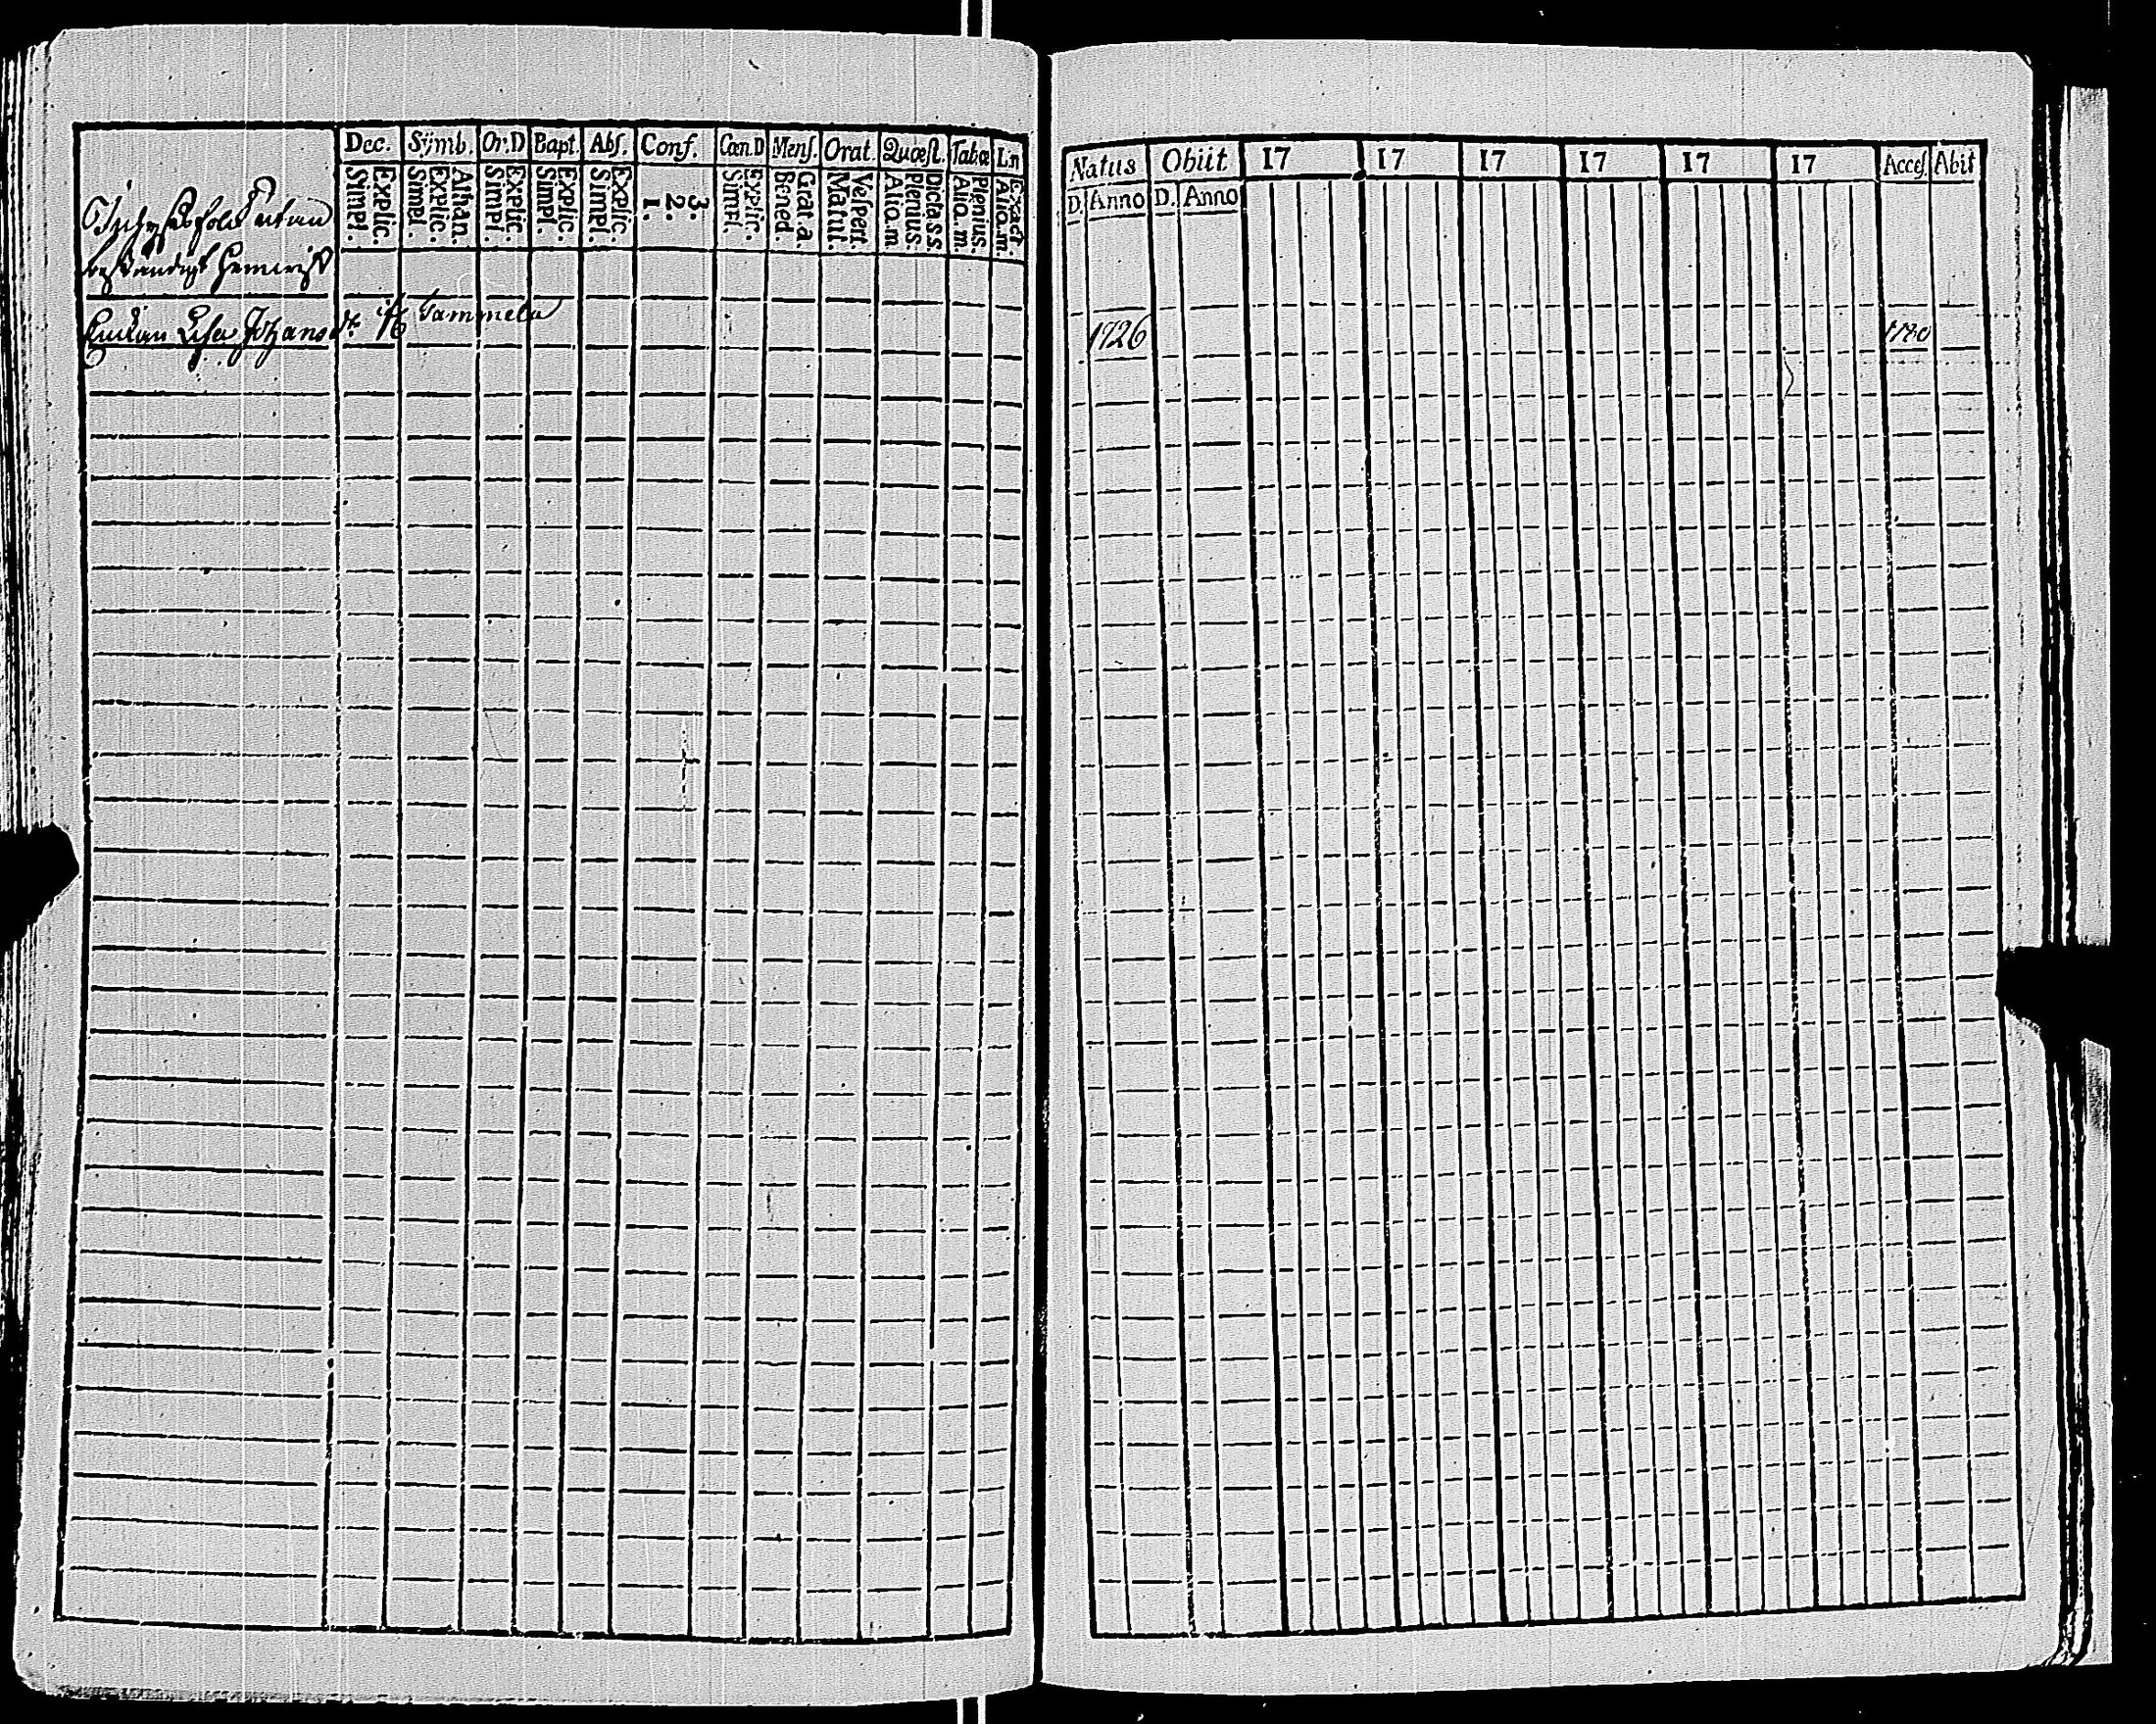 Dec. Symb. Or.D Bapt. Abſ. Conf. Cœn.D Menſ. Orat. Quœſt. Tabœ Lin
Explic. Simpl. Athan. Explic. Simpl. Explic. Simpl. Explic. Simpl. Explic. Simpl. 3. 2. 1. Explic. Simpl. Grat.a Bened. Veſpert. Matut. Dicta ss Plenius. Alio.m Plenius. Alio.m. Exact. Alio.m.
Enkan Lisa Johans dr Tammela
Natus Obiit 17 17 17 17 17 17 Acceſ. Abit
D. Anno D. Anno
1726 1780